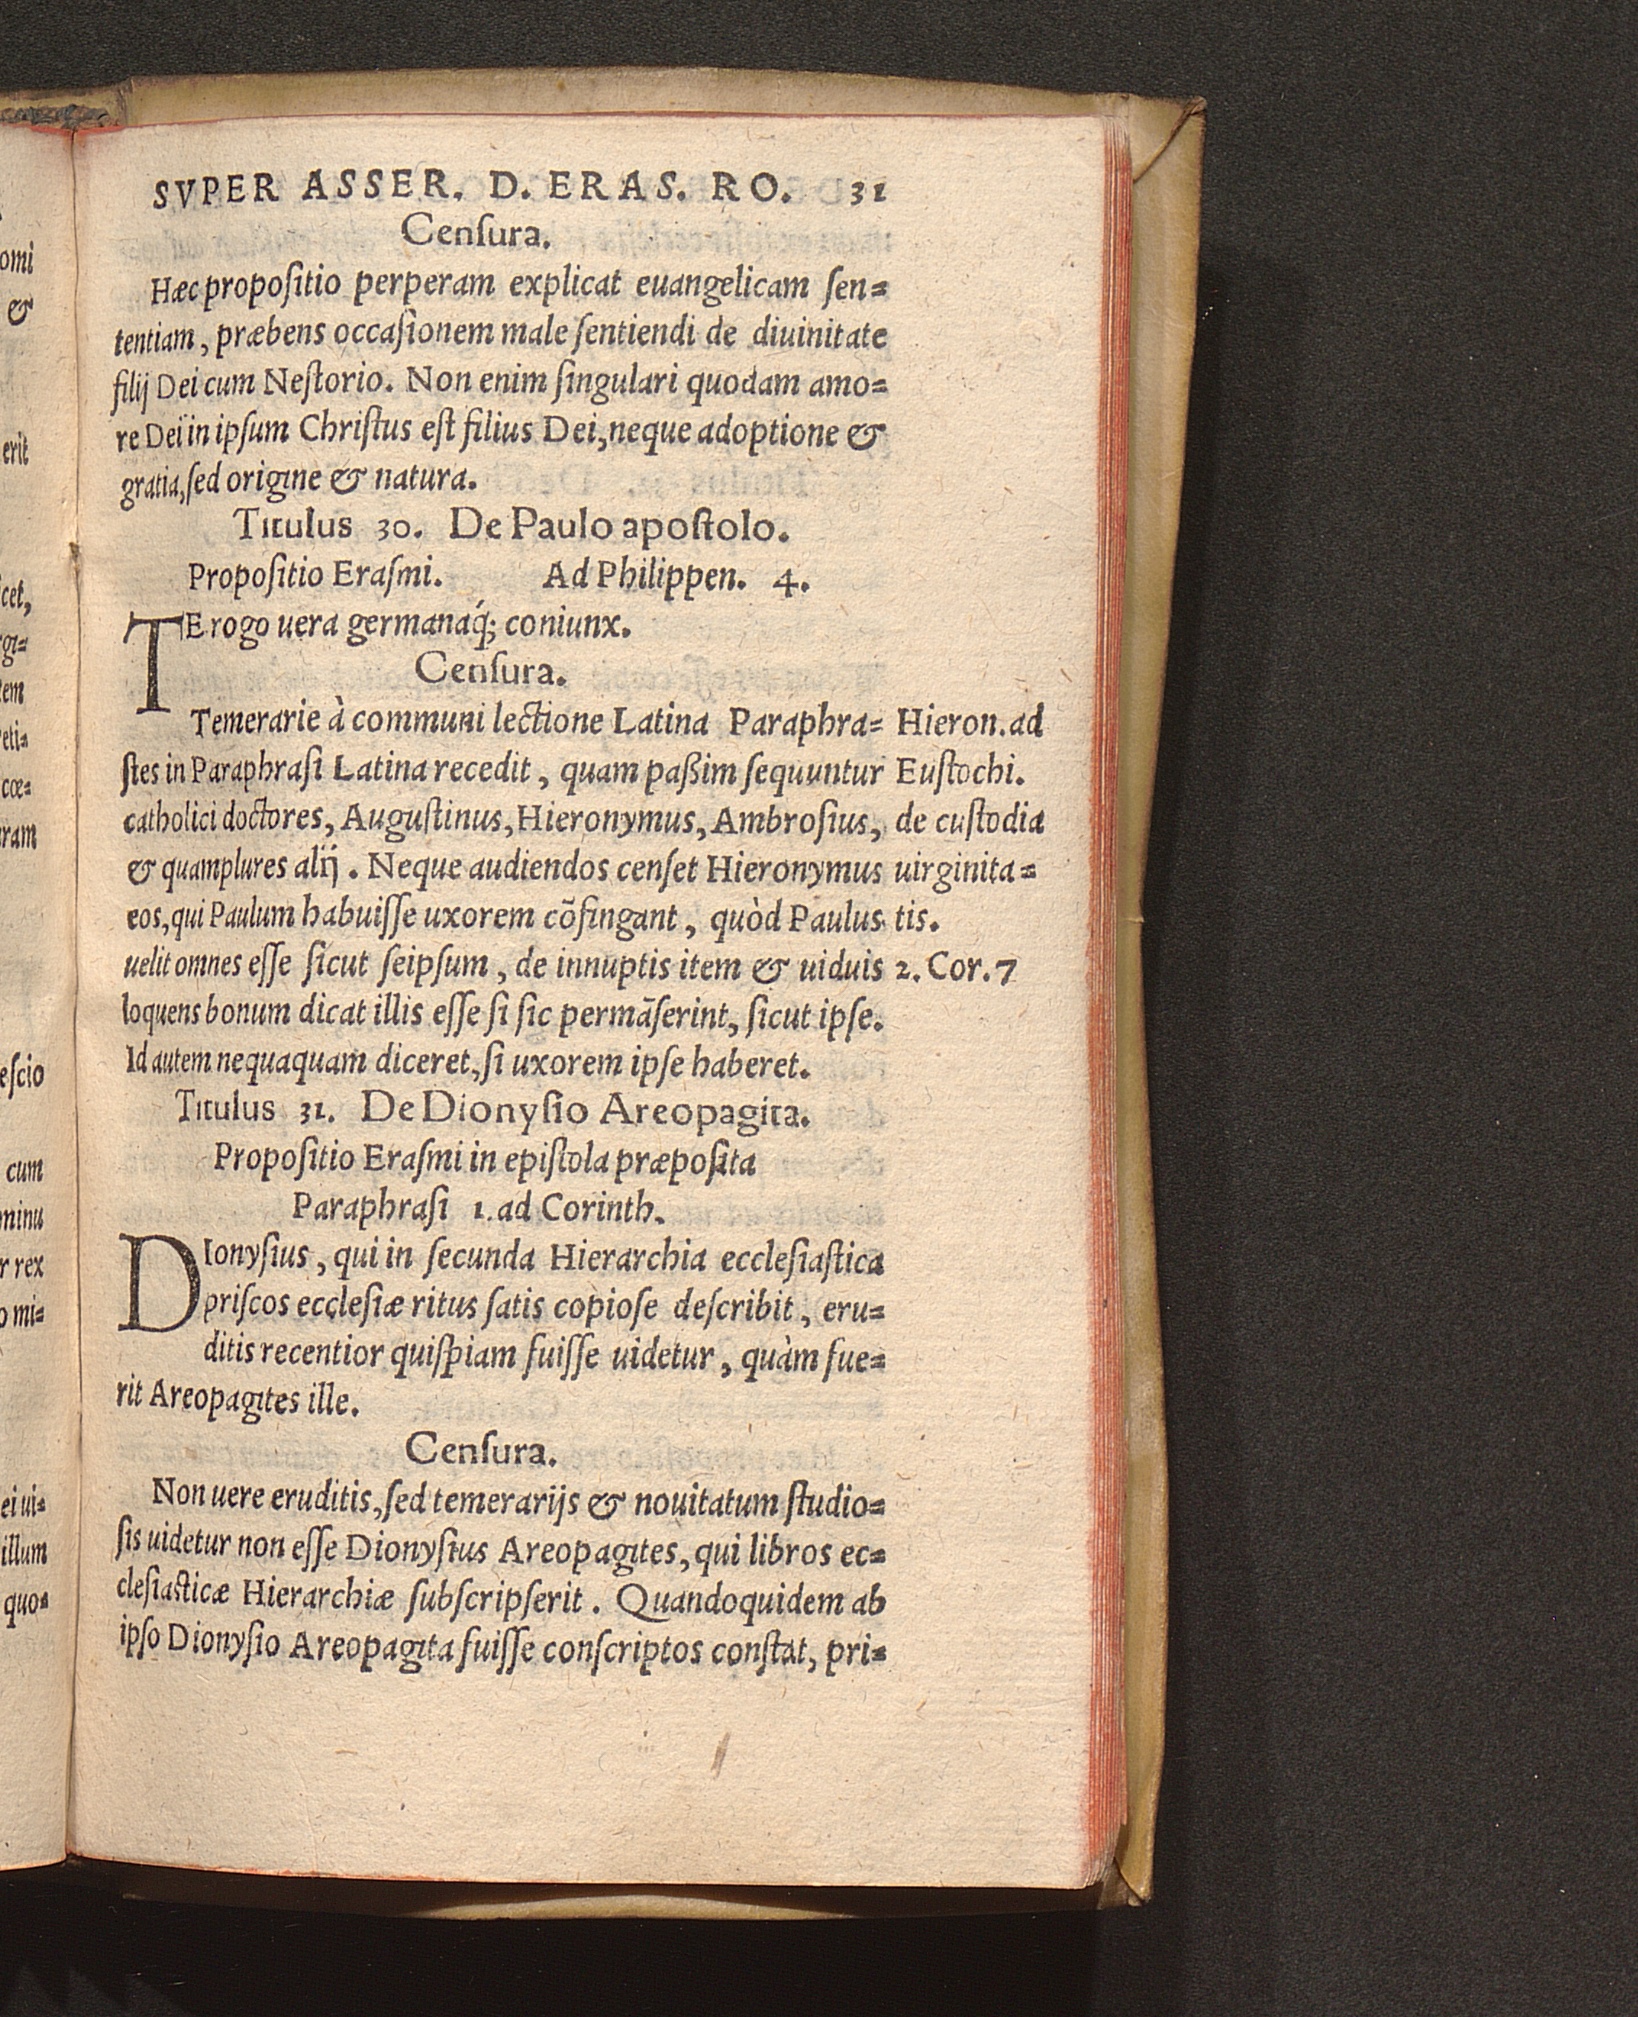 SVPER ASSER. D. ERAS. RO. 31
Cenſura.
Hæc propoſitio perperam explicat euangelicam ſen=
tentiam, præbens occaſionem male ſentiendi de diuinitate
filij Dei cum Neſtorio. Non enim ſingulari quodam amo=
re Dei in ipſum Chriſtus eſt filius Dei, neque adoptione &
gratia, ſed origine & natura.
Titulus 30. De Paulo apoſtolo.
Propoſitio Eraſmi. Ad Philippen. 4.
TE rogo uera germanáq; coniunx.
Cenſura.
Temerarie à communi lectione Latina Paraphra=
ſtes in Paraphraſi Latina recedit, quam paßim ſequuntur
catholici doctores, Auguſtinus, Hieronymus, Ambroſius,
& quamplures alij. Neque audiendos cenſet Hieronymus
eos, qui Paulum habuiſſe uxorem cõfingant, quòd Paulus
uelit omnes eſſe ſicut ſeipſum, de innuptis item & uiduis
loquens bonum dicat illis eſſe ſi ſic permãſerint, ſicut ipſe.
Id autem nequaquam diceret, ſi uxorem ipſe haberet.
Hieron. ad
Euſtochi.
de cuſtodia
uirginita=
tis.
2. Cor. 7
Titulus 31. De Dionyſio Areopagita.
Propoſitio Eraſmi in epiſtola præpoſita
Paraphraſi 1. ad Corinth.
DIonyſius, qui in ſecunda Hierarchia eccleſiaſtica
priſcos eccleſiæ ritus ſatis copioſe deſcribit, eru=
ditis recentior quiſpiam fuiſſe uidetur, quàm fue=
rit Areopagites ille.
Cenſura.
Non uere eruditis, ſed temerarijs & nouitatum ſtudio=
ſis uidetur non eſſe Dionyſius Areopagites, qui libros ec=
cleſiaſticæ Hierarchiæ ſubſcripſerit. Quandoquidem ab
ipſo Dionyſio Areopagita fuiſſe conſcriptos conſtat, pri=